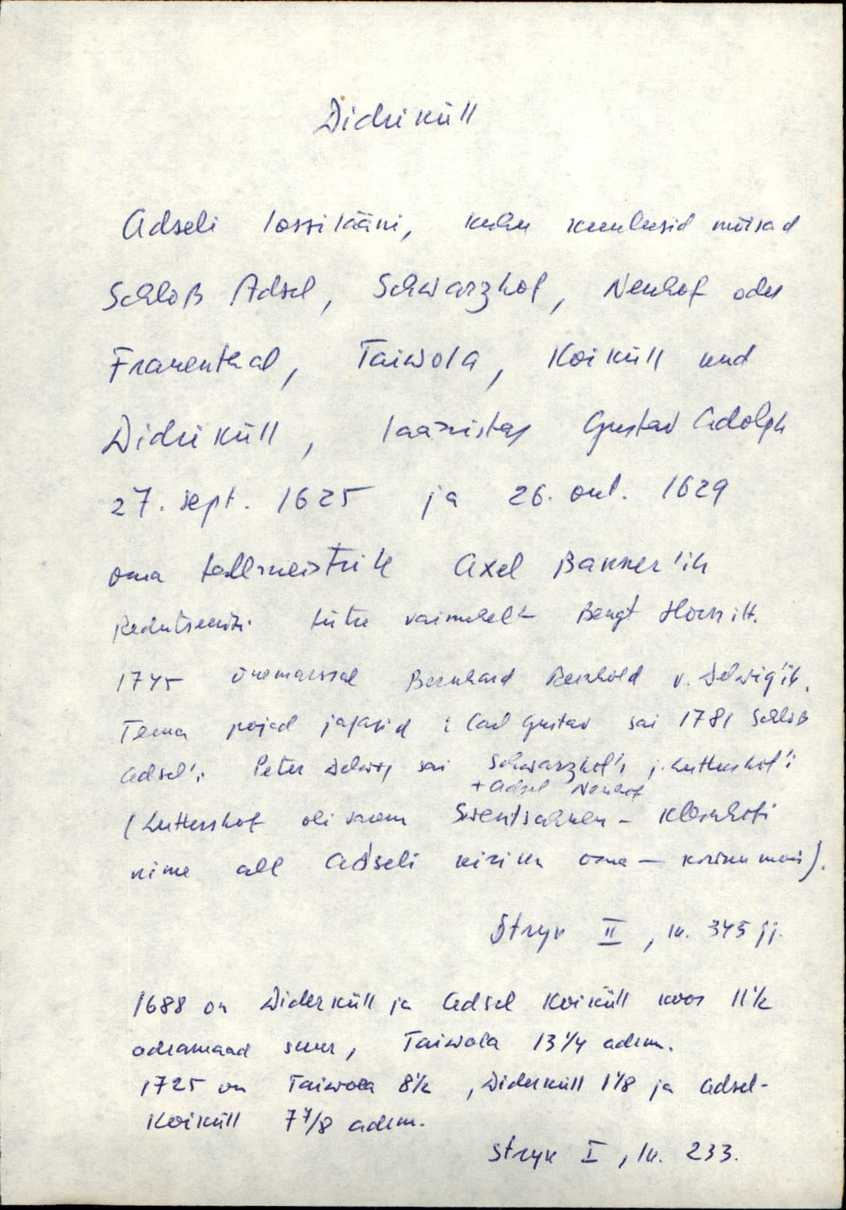 Didriküll
Adseli lossilääni, kuhu kuulusid mõisad
Schloß Adsel, Schwarzhof, Neuhof oder
Frauenthal, Taiwola, Koiküll und
Didriküll, läänistas Gustav Adolph
27. sept. 1625 ja 26. okt. 1629
oma tallmeistrile Axel Banner'ile
Redutseeriti. tütre vaimehelt Bengt Hornilt.
1745 õuemarssal Bernhard Reinhold v. Delwig'ile.
Tema pojad jagasid: Carl Gustav sai 1781 Schloß
Adsel'i Peter Delwig sai Schwarzhof'i j. Luttershof'i
+ Adsel Neuhof
(Luttershof oli varem - Kloschofi
nime all Adseli kiriku oma —
Stryk II, lk. 345 jj.
1688 on Diderküll ja Adsel Koiküll koos 11½
adramaad suur, Taiwola 13¼ adrm.
1725 on Taiwola 8½, Diderküll 1⅛ ja Adsel-
Koiküll 7⅞ adrm.
Stryk I, lk. 233.